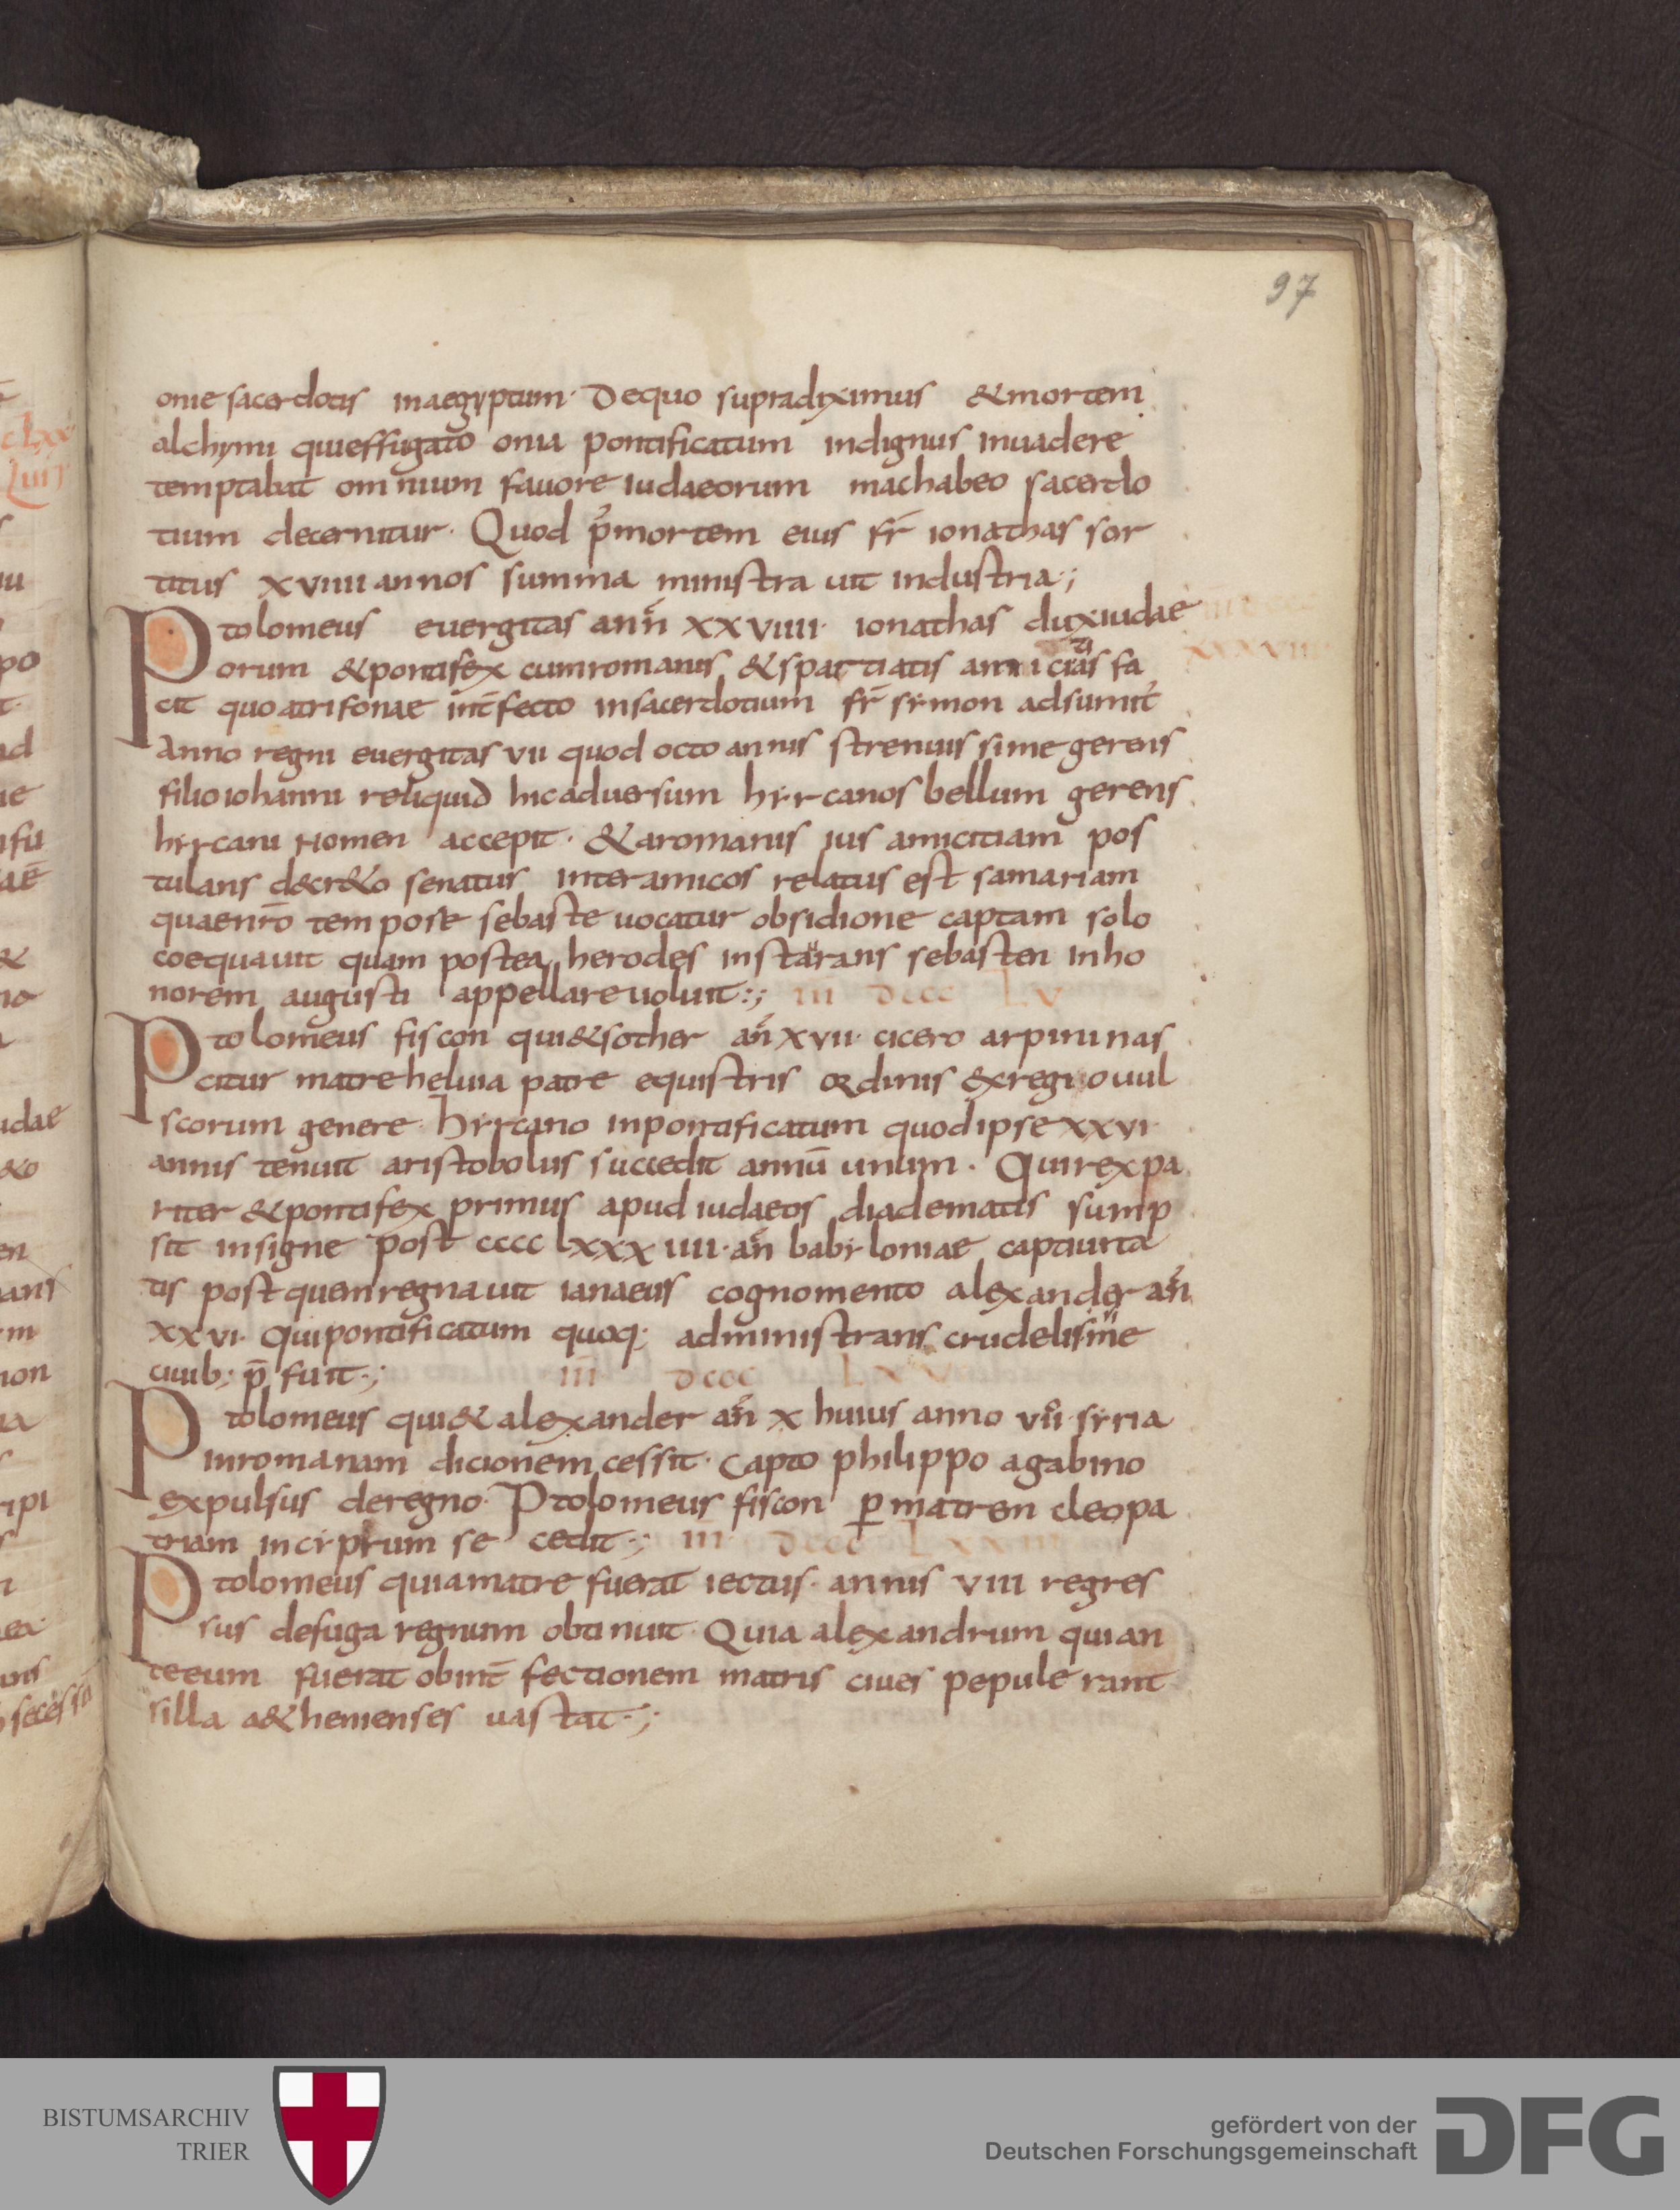 97
onie sacerdotis inaegyptum· Dequo supradiximus &mortem
alchymi quieffugato onia pontificatum indignus inuadere
temptabat omnium fauore iudaeorum machabeo sacerdo
tium decernitur· Quod p᷒mortem eius fr̄ ionathas sor
titus xviiii annos summa ministrauit industria·;
Ptolomeus euergitas ann̄ xxviiii· ionathas duxiudae
orum &pontifex cumromanis &spartiatis amicitias fa
cit quo atrifonae int̄fecto insacerdotium fr̄ symon adsumit᷒
Anno regni euergitas vii quod octo annis strenuissime gerens
filio iohanni reliquid hicaduersum hyrcanos bellum gerens
hyrcani nomen accepit· &aromanis ius amicitiam pos
tulans decr&o senatus interamicos relatus est samariam
quaenrō tempore sebaste uocatur obsidione captam solo
coequauit quam postea herodes instaurans sebasten inho
norem augusti appellareuoluit:; iii dccc lv
Ptolomeus fiscon qui&sother an̄ xvii· cicero arpini nas
citur matrehelvia patre equistris ordinis exregno uul
scorum genere· hyrcano inpontificatum quodipse xxvi·
annis tenuit aristobolus succedit annū unum· Quirexpa
riter &pontifex primus apud iudaeos diadematis sump
sit insigne post cccc lxxxiiii·an̄ babyloniae captiuita
tis postquemregnauit ianaeus cognomento alexander an̄
xxvi· Quipontificatum quoq; administrans crudelissime
ciuib; p̄fuit·; iii dccc lxv
Ptolomeus qui& alexander an̄ x huius anno vii· syria
inromanam dicionem cessit· capto philippo agabino
expulsus deregno· Ptolomeus fiscon p̱ matren cleopa
tram incyprum se cedit·; iii dccc lxxiii
Ptolomeus quiamatre fuerat iectus· annis viii regres
sus defuga regnum obtinuit· Quia alexandrum quian
teeum fuerat obint̄fectionem matris ciues pepulerant
silla a&henienses uastat·;
BISTUMSARCHIV
TRIER
gefördert von der
Deutschen Forschungsgemeinschaft
DFG